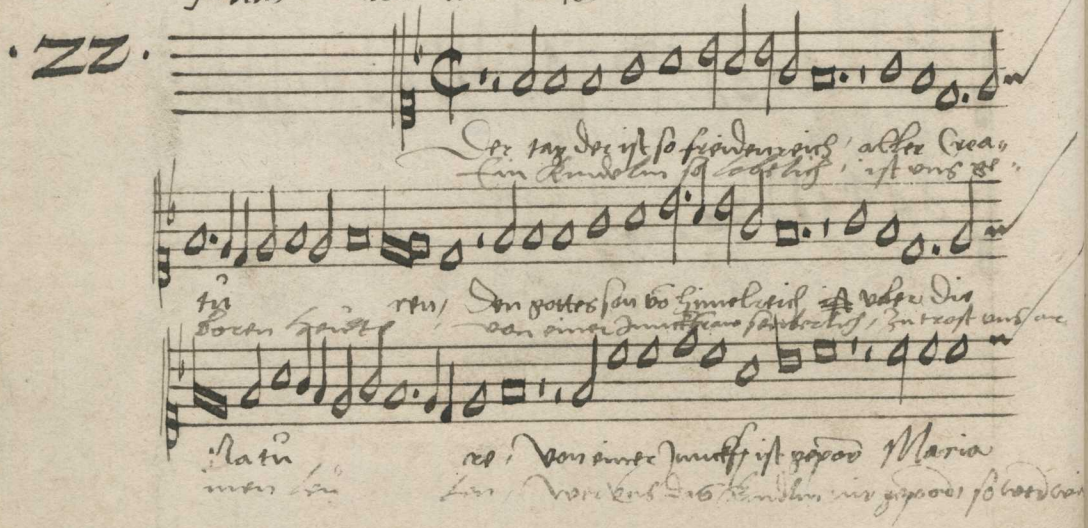 ·22·
Der tag der ist so freidenreich, aller Crea⸗
Ein kindelin so lobelich, ist uns ge⸗
tu ren, Den gottes son vō himelreich uber die
boren heute von einer Junckfraw seuberlich, zu trost uns ar
Natu re, Von einer Junckfr ist geporn Maria
men leu ten, Wer uns das kindlin nit geporn so werd wir